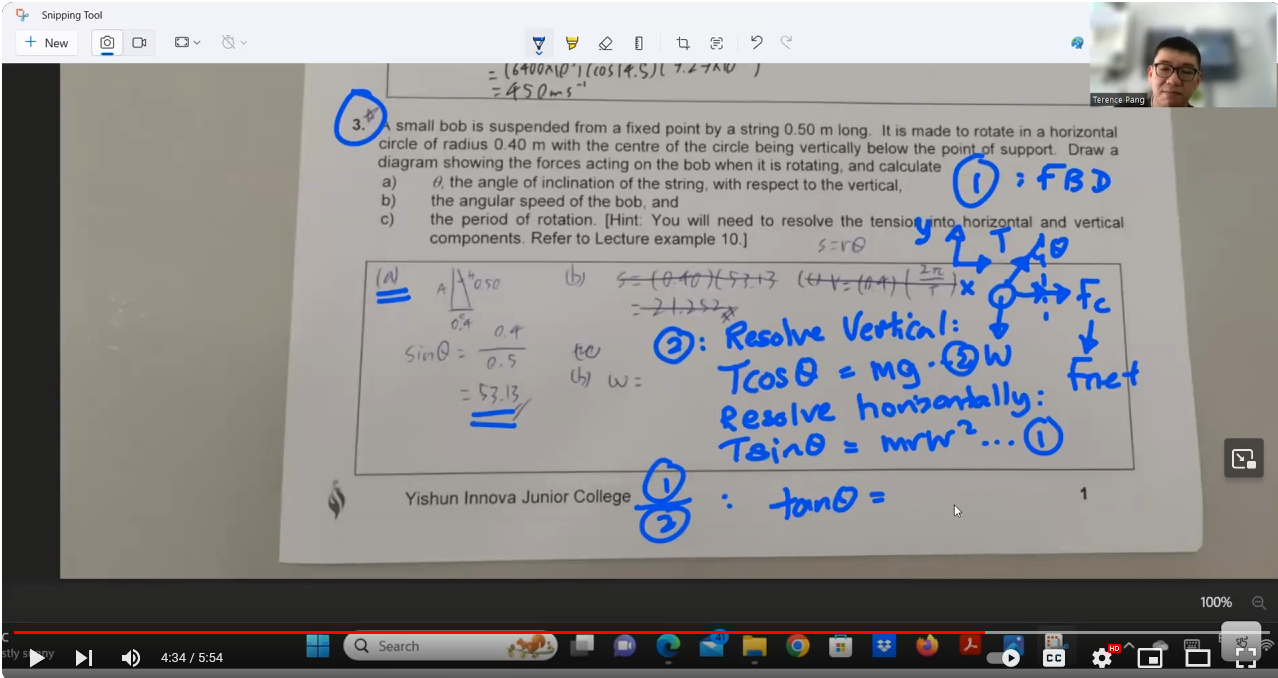 Snipping Tool
New
Terence Pang
= 450ms⁻¹
3.
A small bob is suspended from a fixed point by a string 0.50 m long. It is made to rotate in a horizontal
circle of radius 0.40 m with the centre of the circle being vertically below the point of support. Draw a
diagram showing the forces acting on the bob when it is rotating, and calculate
a) θ, the angle of inclination of the string, with respect to the vertical,
b) the angular speed of the bob, and
c) the period of rotation. [Hint: You will need to resolve the tension into horizontal and vertical
components. Refer to Lecture example 10.]
① : FBD
s=rθ
y
T
θ
x
Fc
W
Fnet
(a)
A
0.50
0.4
sinθ = 0.4
0.5
= 53.13
(b) s = (0.40)(53.13
= 21.252
(b) w =
②: Resolve Vertical:
Tcosθ = mg ..②
Resolve horizontally:
Tsinθ = mrw² ... ①
①
②
: tanθ =
Yishun Innova Junior College
1
100%
Search
4:34 / 5:54
CC
HD